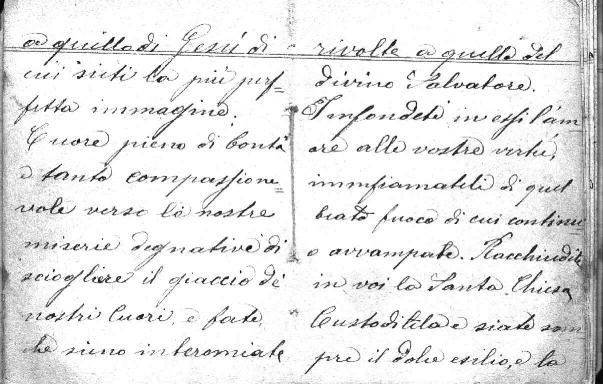 a quillo di Gesú di
cui sieti la più perf=
fetta immagine.
Cuore pieno di bontà
e tanto compassione=
vole verso le nostre
miserie degnative di
sciogliere il giaccio de
nostri Cuori, e fate,
che sieno interamiate
rivolte a quelle del
divino Salvatore.
Infondeti in essi l'am
ore alle vostre vertú,
immfiamateli di quel
beato fuoco di cui continu
o avvampate. Racchiudite
in voi la Santa Chiesa
Custoditela e siate sem
pre il dolce esilio, e la